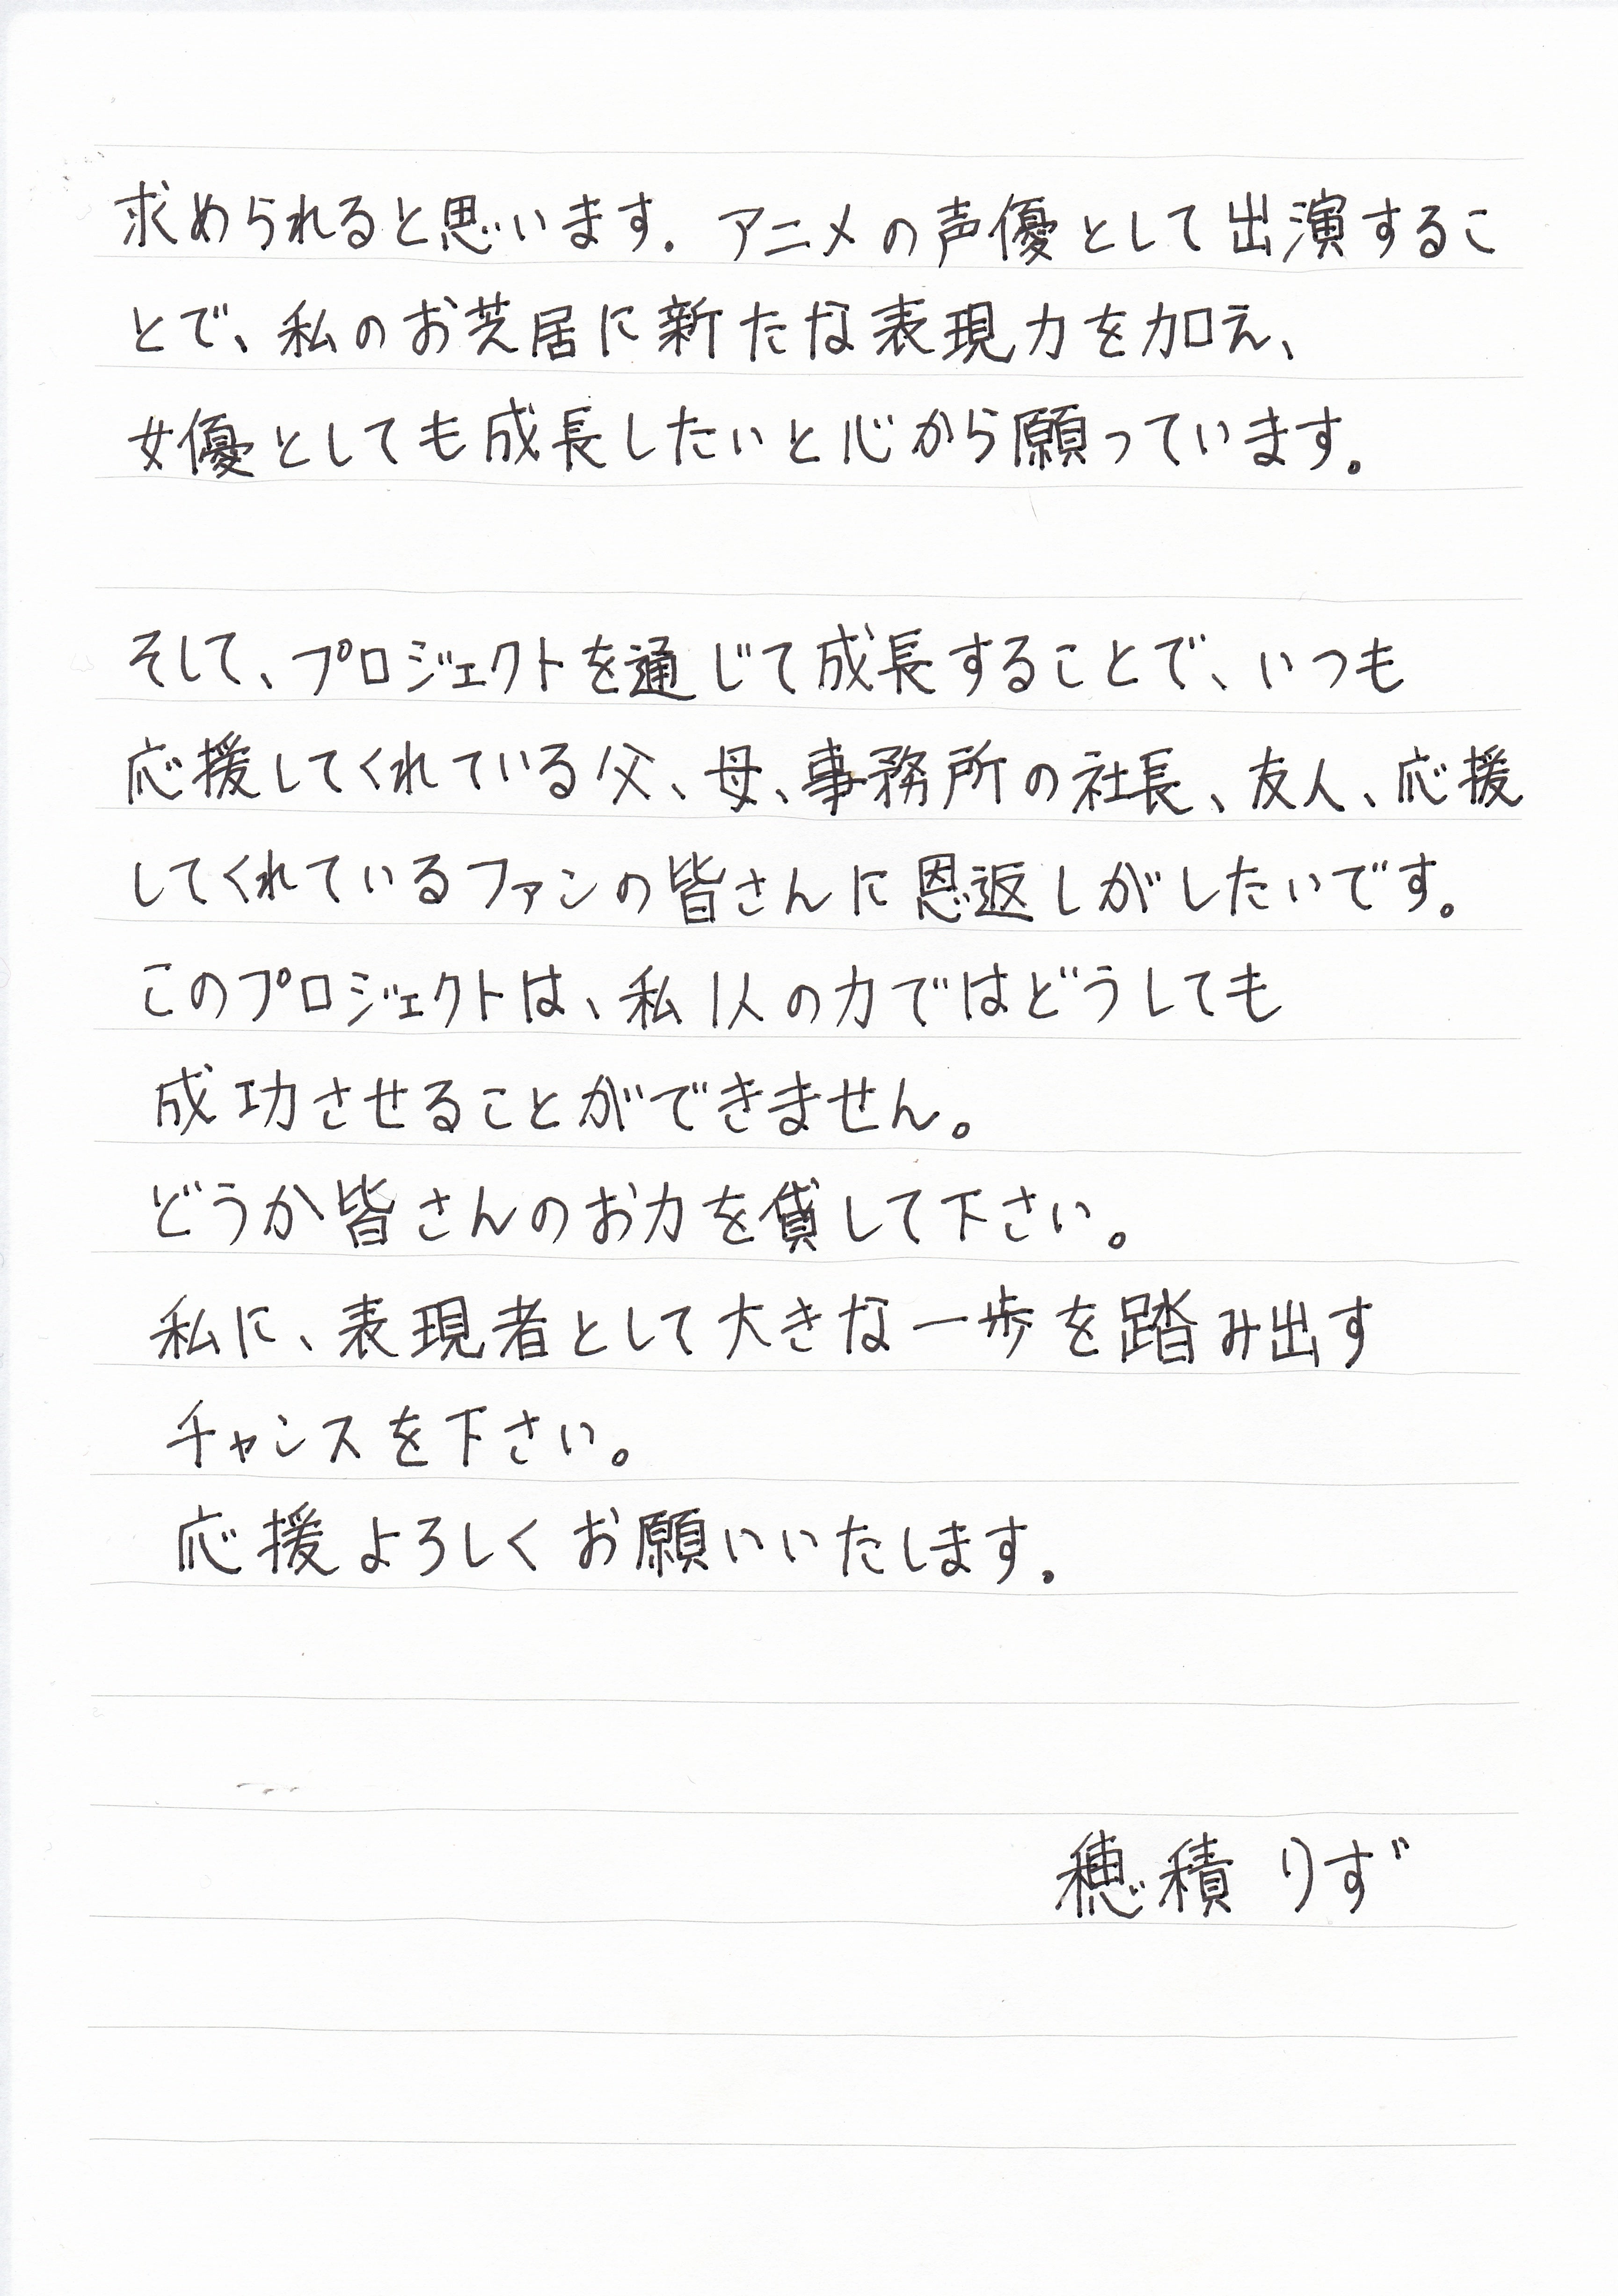 求められると思います。アニメの声優として出演するこ
とで、私のお芝居に新たな表現力を加え、
女優としても成長したいと心から願っています。
そして、プロジェクトを通じて成長することで、いつも
応援してくれている父、母、事務所の社長、友人、応援
してくれているファンの皆さんに恩返しがしたいです。
このプロジェクトは、私1人の力ではどうしても
成功させることができません。
どうか皆さんのお力を貸して下さい。
私に、表現者として大きな一歩を踏み出す
チャンスを下さい。
応援よろしくお願いいたします。
穂積りず